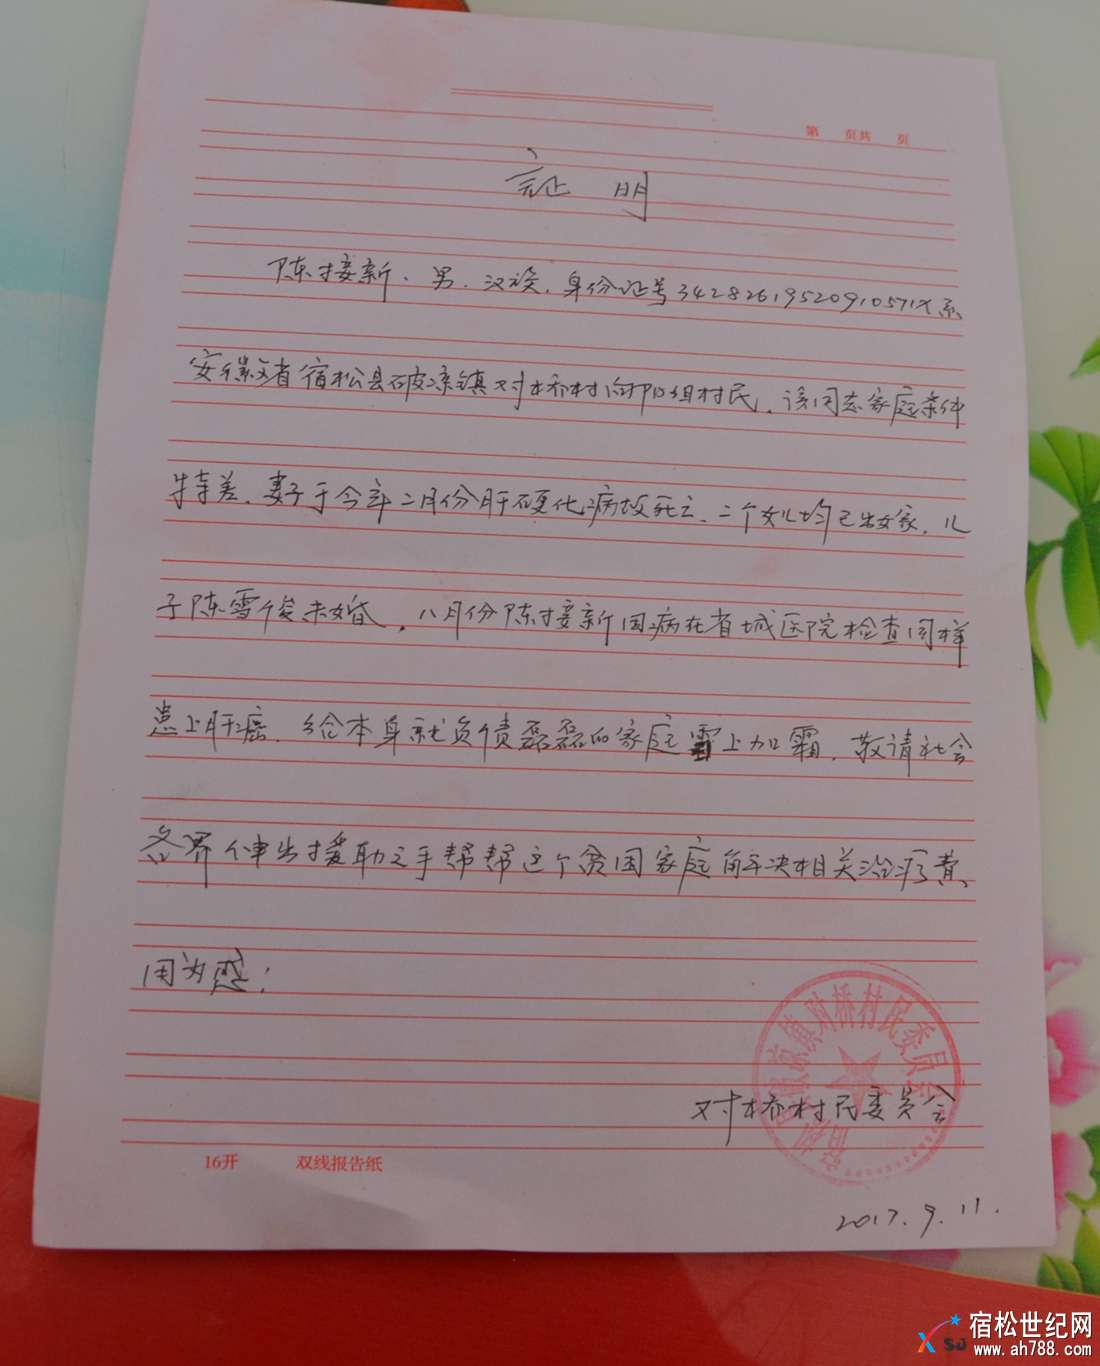 第 页共 页
证明
陈接新、男、汉族、身份证号34282619520910571X系
安徽省宿松县破凉镇对桥村向阳组村民，该同志家庭条件
特差，妻子于今年二月份肝硬化病故死亡，二个女儿均已出嫁，儿
子陈雪俊未婚，八月份陈接新因病在省城医院检查同样
患上肝癌，给本身就负债磊磊的家庭雪上加霜，敬请社会
各界伸出援助之手帮帮这个贫困家庭解决相关治疗费
用为感！
宿松县破凉镇对桥村民委员会
对桥村民委员会
16开 双线报告纸
2017.9.11.
宿松世纪网
www.ah788.com